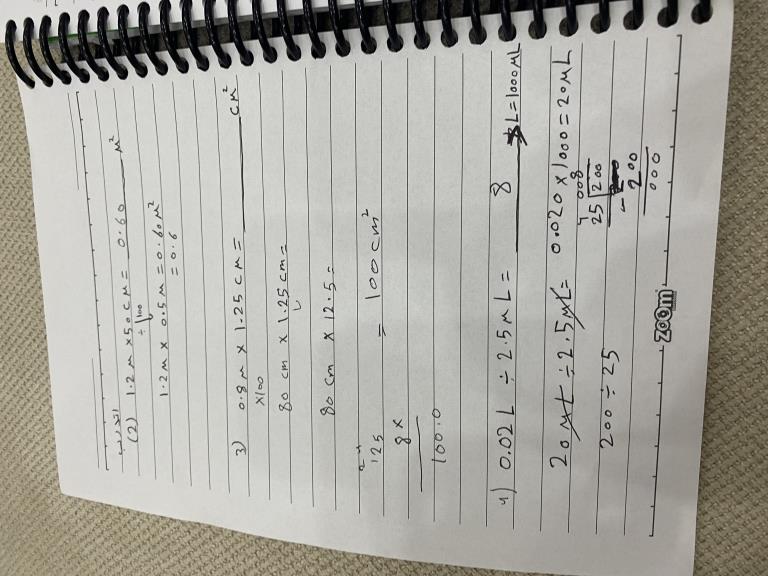 التدريب
(2) 1.2 M x 50 cM = 0.60 M²
÷ 100
1.2 M x 0.5 M = 0.60 M²
= 0.6
3) 0.8 M x 1.25 cM = ____ cM²
x100
80 cm x 1.25 cm =
80 cm x 12.5 =
= 100 cm²
125
8 x
100.0
4) 0.02 L ÷ 2.5 mL = 8
L = 1000 ML
20 ML ÷ 2.5 ML =
0.020 x 1000 = 20 ML
200 ÷ 25
008
25 200
- 200
000
zoom